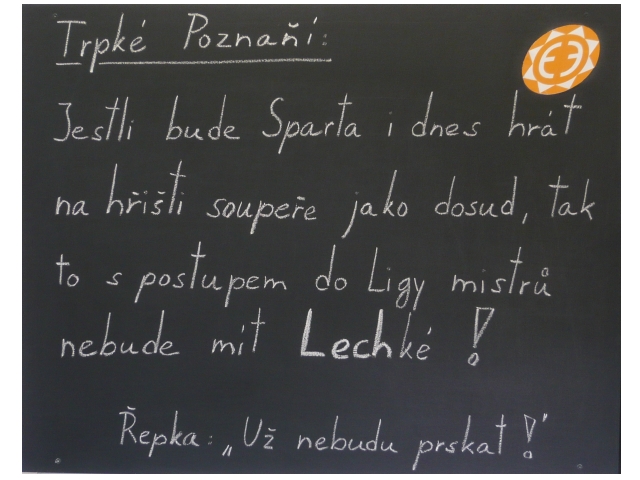 Trpké Poznaňí:
Jestli bude Sparta i dnes hrát
na hřišti soupeře jako dosud, tak
to s postupem do Ligy mistrů
nebude mít Lechké!
Řepka: „Už nebudu prskat!"